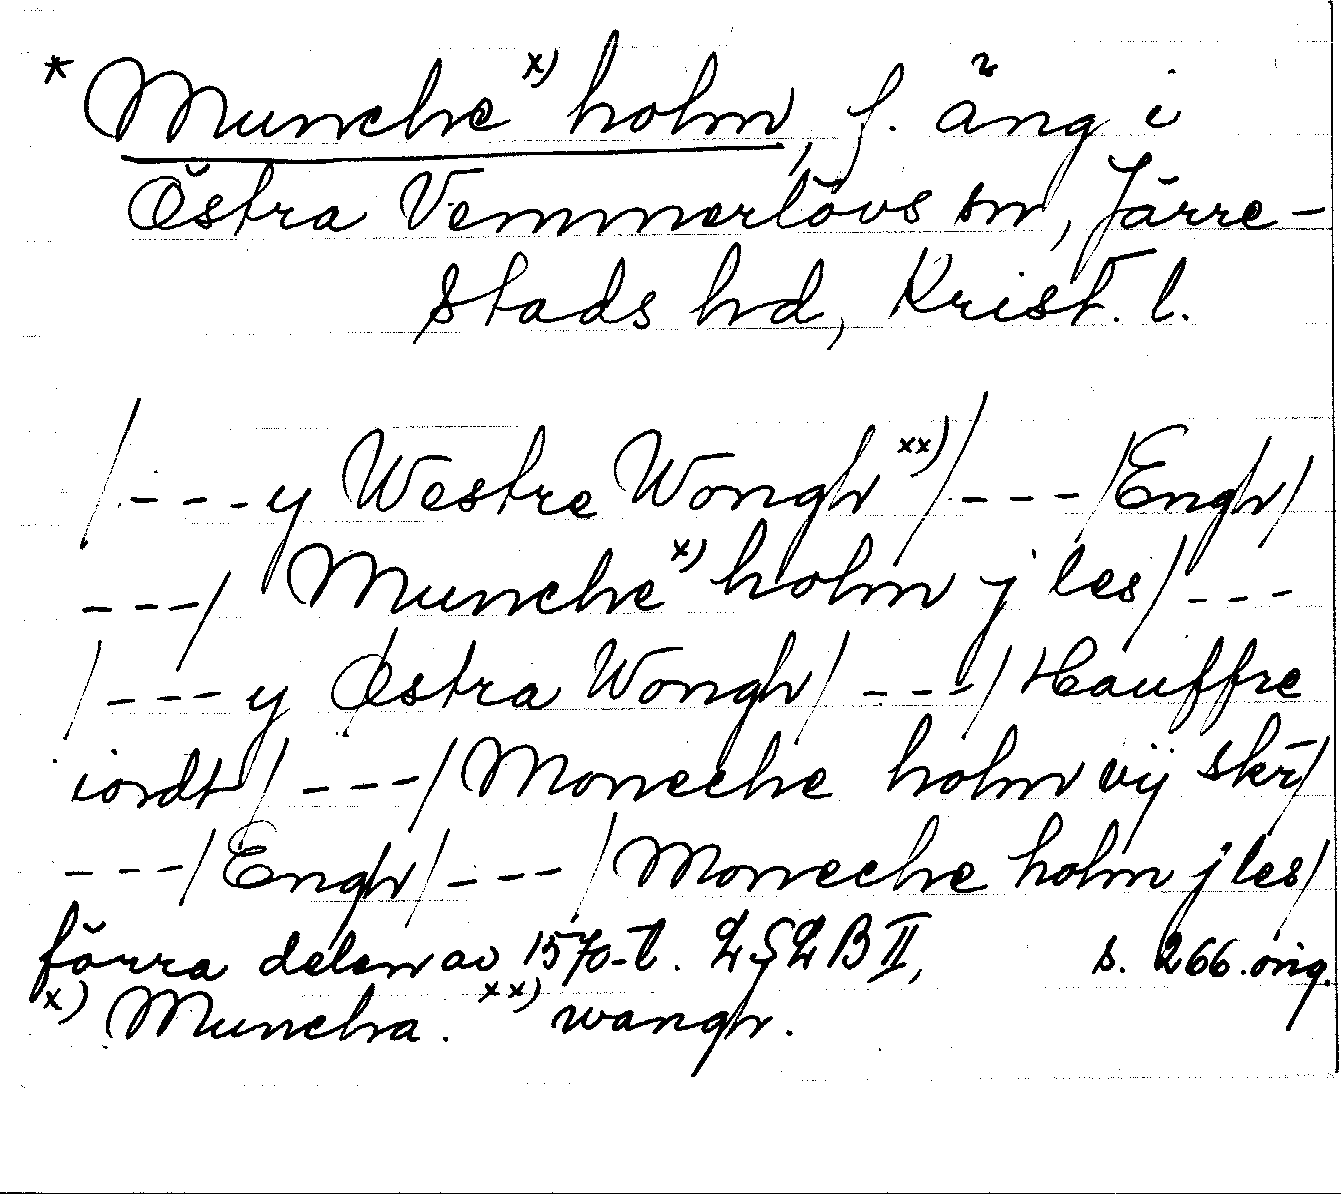 * Munche x) holm, f. äng i
Östra Vemmerlövs sn, Järre-
stads hd, Krist. l.
/---y Westre Wongh xx)/---/Engh/
---/ Munche x) holm j les/---
/---y Østra Wongh/---/Hauffre
iordt/---/Moneche holm vij skr/
---/Engh/---/Moneche holm j les/
förra delen av 1570-t. LGLB II, s. 266. orig.
x) Muncha. xx) wangh.